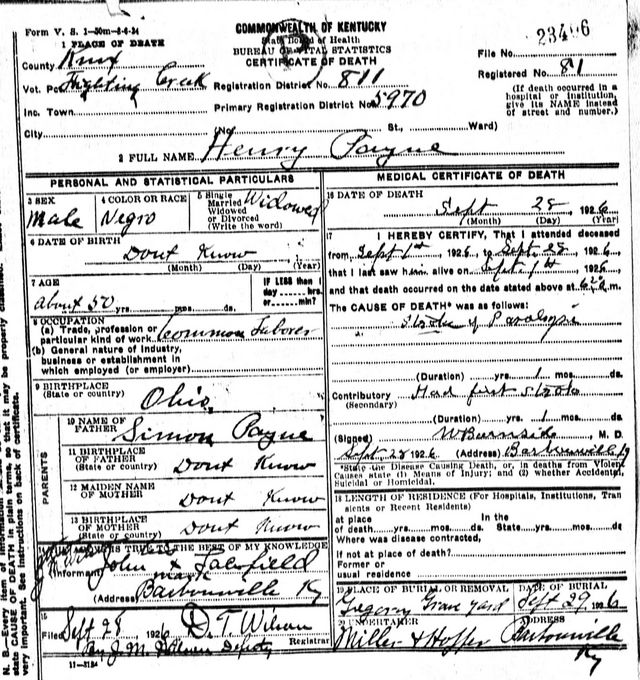 Form V. S. 1-50m-8-4-24
COMMONWEALTH OF KENTUCKY
State Board of Health
BUREAU OF VITAL STATISTICS
CERTIFICATE OF DEATH
File No. 23496
Registered No. 81
(If death occurred in a hospital or institution, give its NAME instead of street and number.)
1 PLACE OF DEATH
County Knox
Vot. Pct. Fighting Creek
Registration District No. 811
Inc. Town
Primary Registration District No. 5970
City (No. St., Ward)
2 FULL NAME Henry Payne
PERSONAL AND STATISTICAL PARTICULARS
3 SEX
Male
4 COLOR OR RACE
Negro
5 Single
Married
Widowed
or Divorced
(Write the word)
Widowed
6 DATE OF BIRTH
Dont Know
(Month) (Day) (Year)
7 AGE
About 50 yrs. mos. ds.
IF LESS than 1
day hrs.
or min?
8 OCCUPATION
(a) Trade, profession or
particular kind of work Common Laborer
(b) General nature of industry,
business or establishment in
which employed (or employer)
9 BIRTHPLACE
(State or country) Ohio
PARENTS
10 NAME OF
FATHER Simon Payne
11 BIRTHPLACE
OF FATHER
(State or country) Dont Know
12 MAIDEN NAME
OF MOTHER Dont Know
13 BIRTHPLACE
OF MOTHER
(State or country) Dont Know
14 THE ABOVE IS TRUE TO THE BEST OF MY KNOWLEDGE
(Informant) John
(Address) Barbourville Ky
15
Filed Sept 28 1926 D. T. Wilson
Registrar
By J. M. Deputy
11-3124
MEDICAL CERTIFICATE OF DEATH
16 DATE OF DEATH
Sept 28, 1926
(Month) (Day) (Year)
17 I HEREBY CERTIFY, That I attended deceased
from Sept 1st 1926, to Sept 28, 1926,
that I last saw him alive on Sept 1st 1926,
and that death occurred on the date stated above at m.
The CAUSE OF DEATH* was as follows:
Stroke of Paralysis
(Duration) yrs. 1 mos. ds.
Contributory Had first stroke
(Secondary)
(Duration) yrs. 1 mos. ds.
(Signed) W Burnside, M. D.
Sept 28 1926 (Address) Barbourville Ky
*State the Disease Causing Death, or, in deaths from Violent
Causes state (1) Means of Injury; and (2) whether Accidental,
Suicidal or Homicidal.
18 LENGTH OF RESIDENCE (For Hospitals, Institutions, Tran
sients or Recent Residents)
at place In the
of death yrs. mos. ds. State yrs. mos. ds.
Where was disease contracted,
if not at place of death?
Former or
usual residence
19 PLACE OF BURIAL OR REMOVAL
Gregory Grave yard
DATE OF BURIAL
Sept 29, 1926
20 UNDERTAKER
Miller & Hopper
ADDRESS
Barbourville
Ky